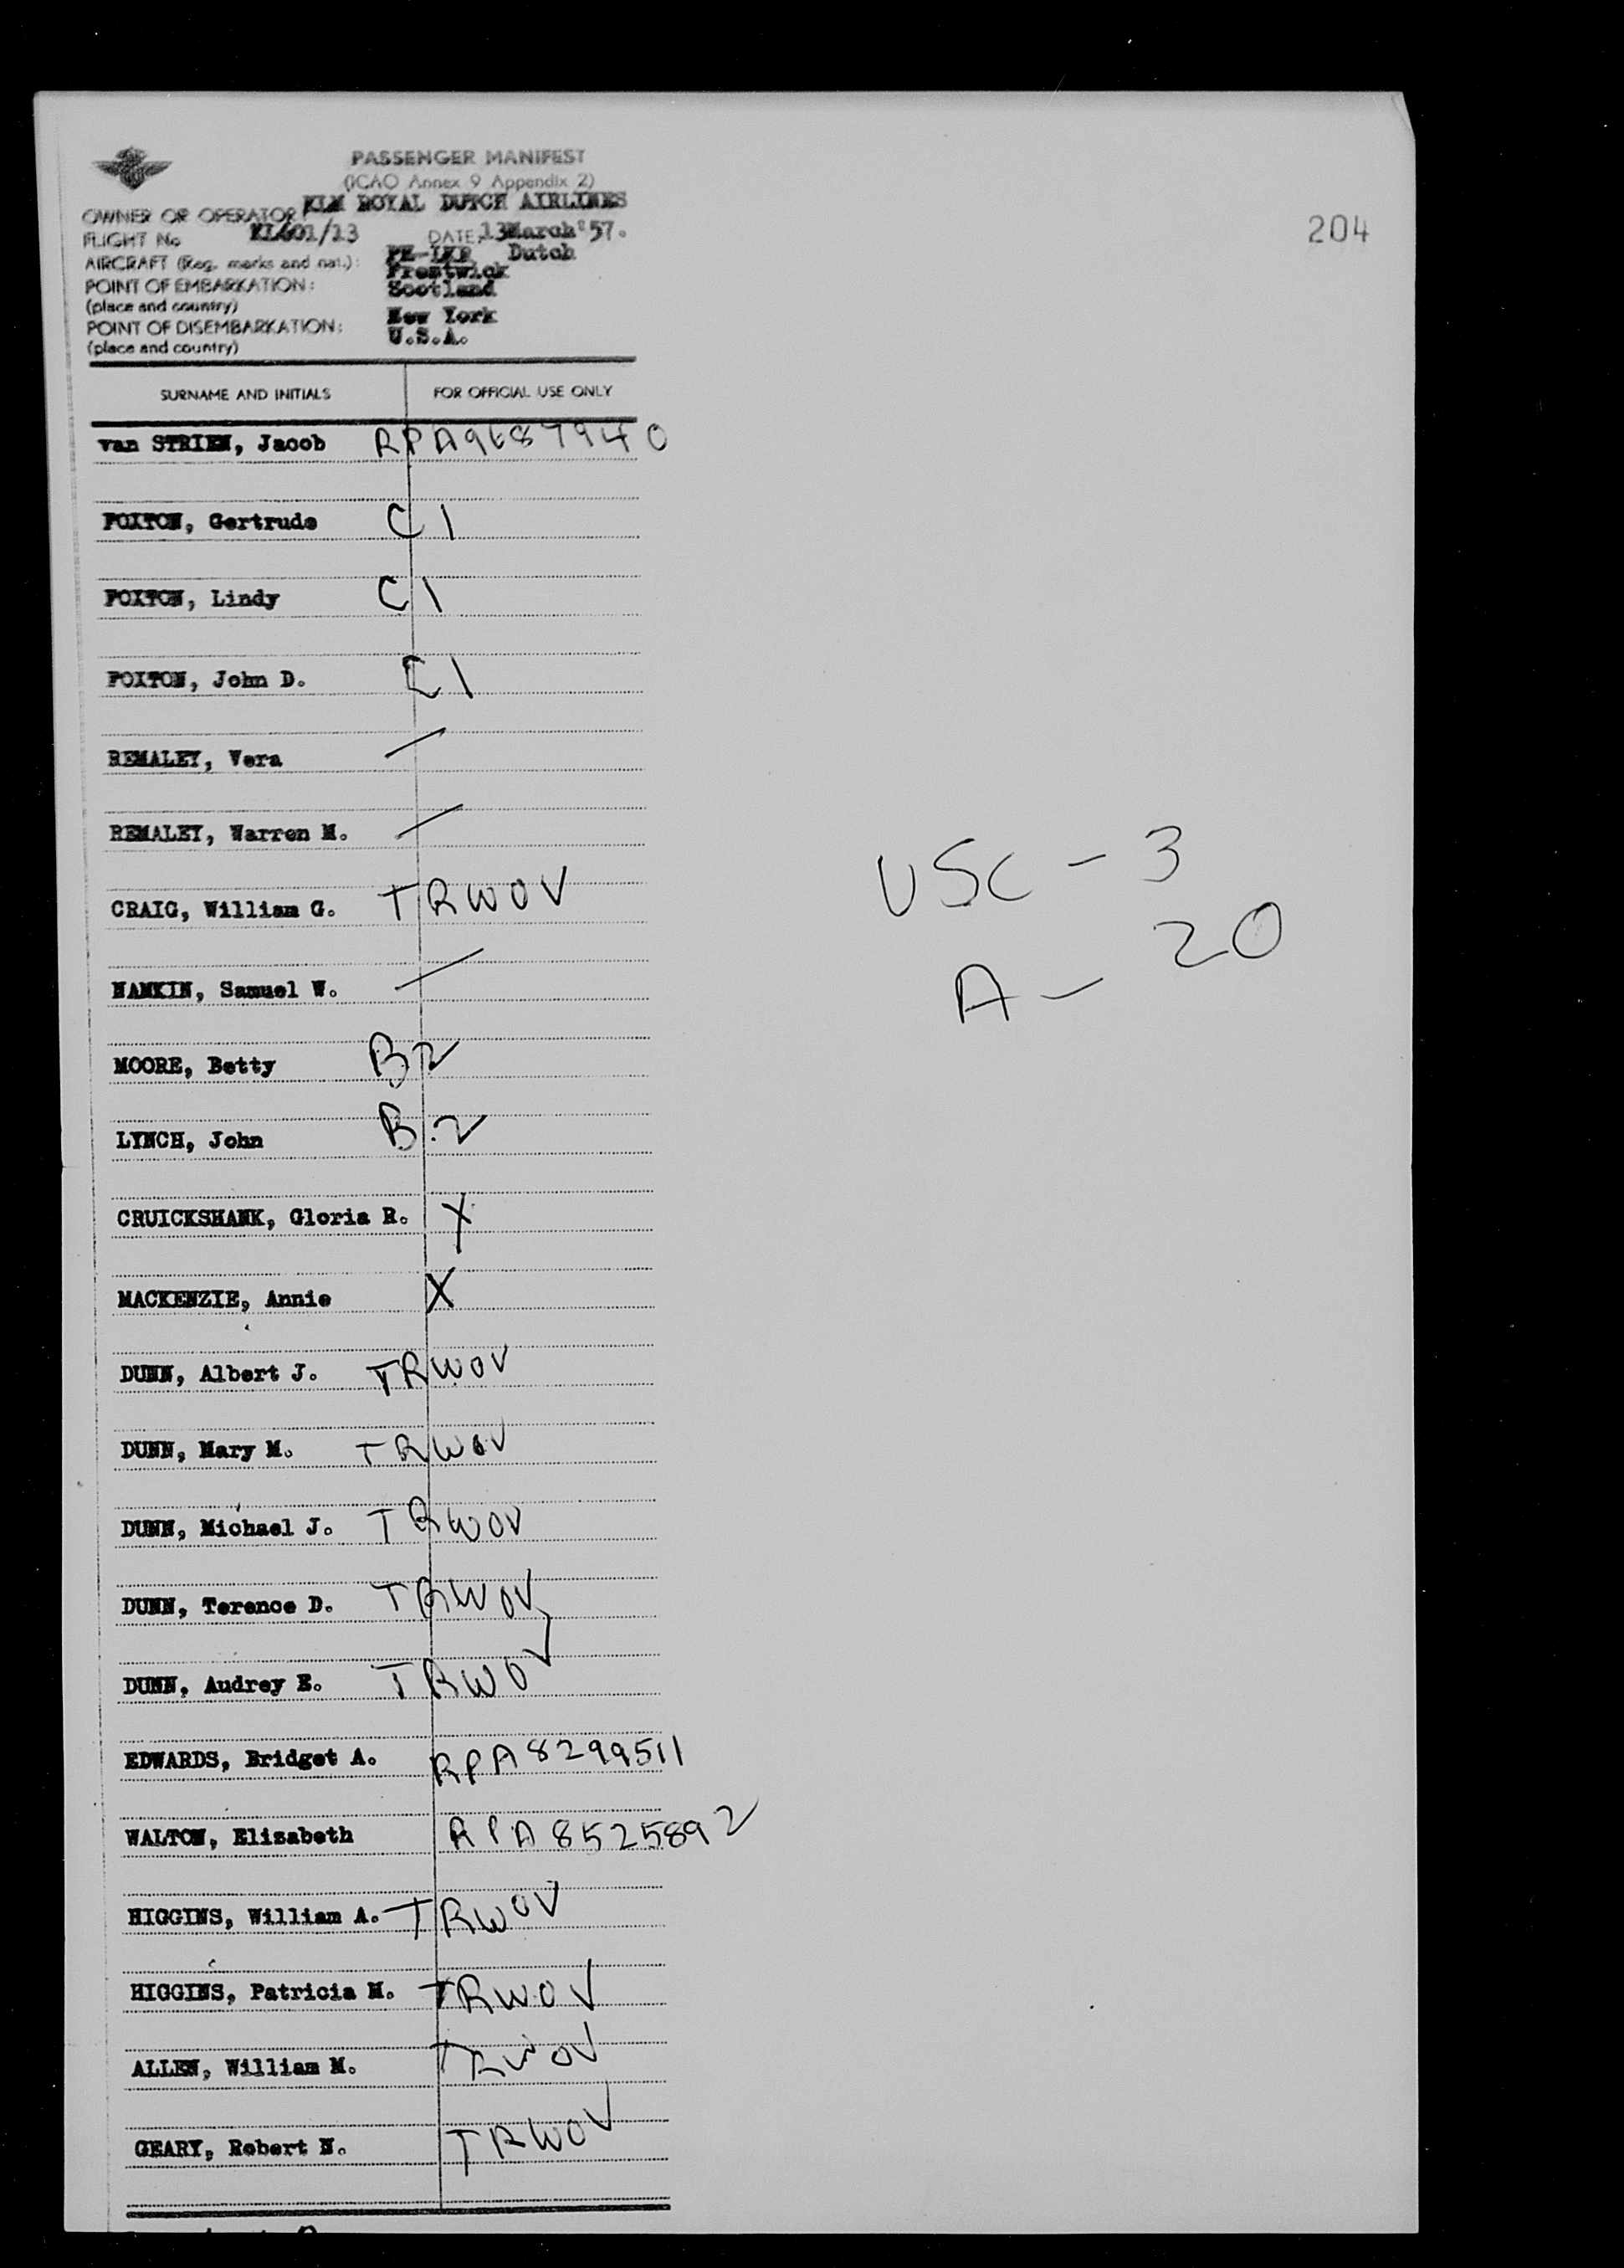 PASSENGER MANIFEST
(ICAO Annex 9 Appendix 2)
OWNER OR OPERATOR KLM ROYAL DUTCH AIRLINES
FLIGHT No KL601/13 DATE: 13March'57.
AIRCRAFT (Reg. marks and nat.): Dutch
POINT OF EMBARKATION: Prestwick
(place and country) Scotland
POINT OF DISEMBARKATION: New York
(place and country) U.S.A.
204
SURNAME AND INITIALS FOR OFFICIAL USE ONLY
van STRIEN, Jacob RPA9687940
FOXTON, Gertrude C1
FOXTON, Lindy C1
FOXTON, John D. C1
REMALEY, Vera
REMALEY, Warren M.
CRAIG, William G. TRWOV
USC - 3
A - 20
Samuel W.
MOORE, Betty B2
LYNCH, John B.2
CRUICKSHANK, Gloria R. X
MACKENZIE, Annie X
DUNN, Albert J. TRWOV
DUNN, Mary M. TRWOV
DUNN, Michael J. TRWOV
DUNN, Terence D. TRWOV
DUNN, Audrey E. TRWOV
EDWARDS, Bridget A. RPA8299511
WALTON, Elizabeth RPA8525892
HIGGINS, William A. TRWOV
HIGGINS, Patricia M. TRWOV
ALLEN, William M. TRWOV
GEARY, Robert N. TRWOV